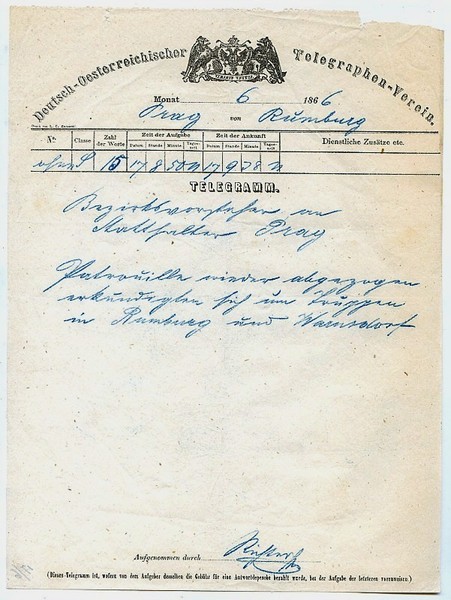 Deutsch-Oesterreichischer Telegraphen-Verein.
Monat 6 1866
Prag von Rumburg
Nr. Classe Zahl der Worte Zeit der Aufgabe Zeit der Ankunft Dienstliche Zusätze etc.
Datum Stunde Minute Datum Stunde Minute
ohne S 15 17 8 50 17 9 38
TELEGRAMM.
Bezirksvorsteher an
Statthalter Prag
Patrouille wieder abgezogen
erkundigten sich um Truppen
in Rumburg und Warnsdorf
Aufgenommen durch
(Dieses Telegramm ist, wofern von dem Aufgeber desselben die Gebühr für eine Antwortdepesche bezahlt wurde, bei der Aufgabe der letzteren vorzuweisen.)